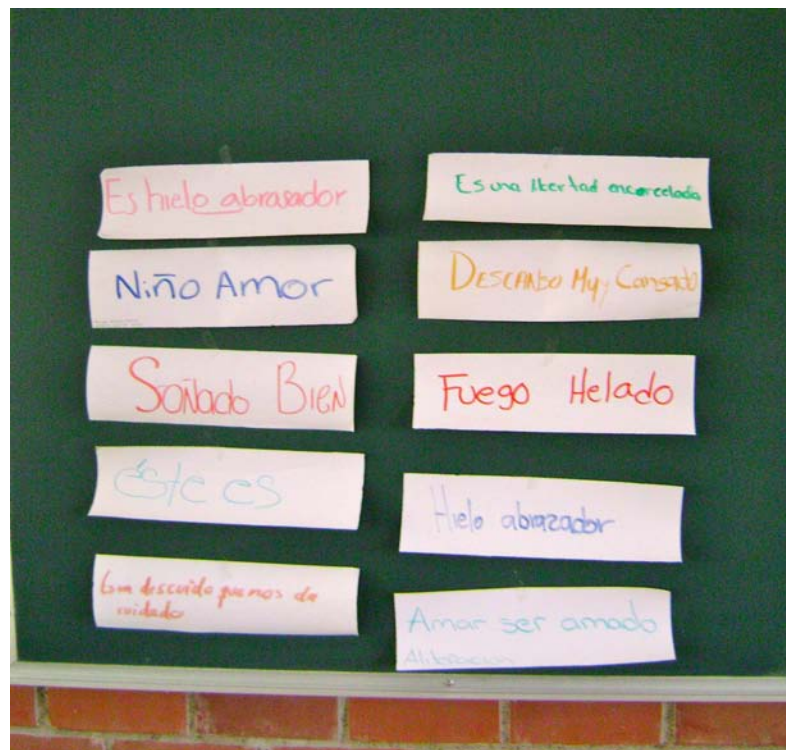 Es hielo abrasador
Niño Amor
Soñado Bien
éste es
un descuido que nos da
cuidado
Es una libertad encarcelada
DESCANSO Muy Cansado
Fuego Helado
Hielo abrazador
Amar ser amado